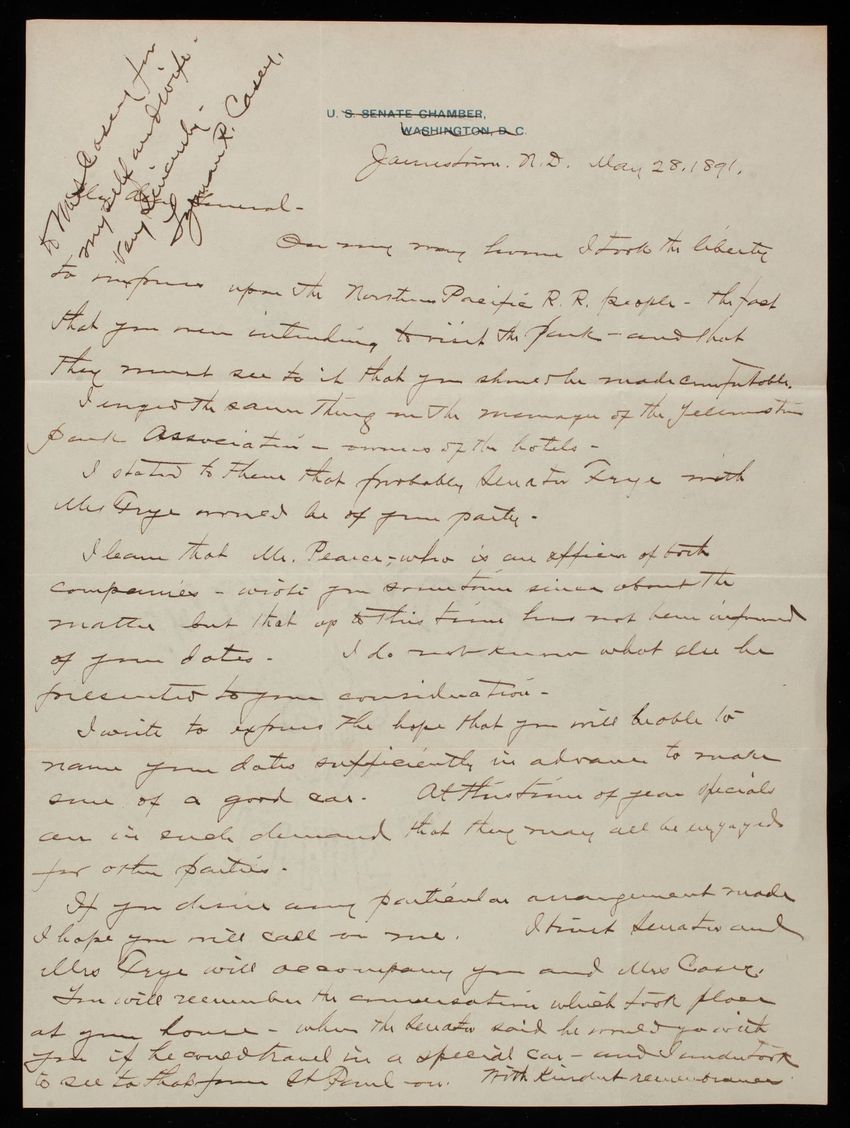 U. S. SENATE CHAMBER,
WASHINGTON, D. C.
Jamestown. N.D. May 28. 1891.
My dear General -
On my way home I took the liberty
to impress upon the Northern Pacific R. R. people - the fact
that you were intending to visit the park - and that
they must see to it that you should be made comfortable.
I urged the same thing on the manager of the Yellowstone
park Association - owners of the hotels -
I stated to them that probably Senator Frye with
Mrs Frye would be of your party -
I learn that Mr. Pearce, who is an officer of both
companies - wrote you sometime since about the
matter but that up to this time has not been informed
of your dates - I do not know what else he
presented to your consideration -
I write to express the hope that you will be able to
name your dates sufficiently in advance to make
sure of a good car. At this time of year specials
are in such demand that they may all be engaged
for other parties -
If you desire any particular arrangement made
I hope you will call on me. I trust Senator and
Mrs Frye will accompany you and Mrs Casey.
You will remember the conversation which took place
at your house - when the Senator said he would go with
you if he could travel in a special car - and I undertook
to see to that from St Paul on. With kindest remembrances
to Mrs Casey from
myself and wife -
Very Sincerely -
Lyman R. Casey.